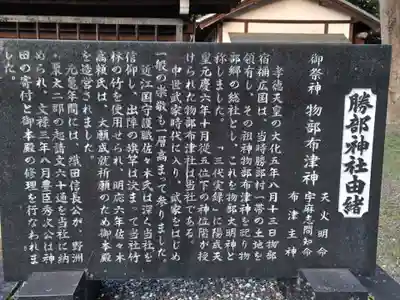 勝部神社由緒
御祭神 物部布津神
天火明命
宇麻志間知命
布津主神
孝徳天皇の大化五年八月十三日物部
宿禰広国は、当時勝部村一帯の土地を
領有し、その祖神物部布津神を祀り物
部郷の総社とし、これを物部大明神と
称しました。「三代実録」に陽成天
皇元慶六年十月従五位下の神位階が授
けられた物部布津神社は当社である。
中世武家時代に入り、武家をはじめ
一般の崇敬も一層高まって参りました
近江国守護職佐々木氏は深く当社を
信仰し、出陣の旗竿は決まって当社竹
林の竹を使用せられ、明応六年佐々木
高頼氏は、大願成就祈願のため御本殿
を造営されました。
元亀年間には、織田信長公が、野洲
栗太二郡の起請文六十通を当社に納
められ、文禄三年八月豊臣秀次公は神
田の寄付と御本殿の修理を行なわれま
した。